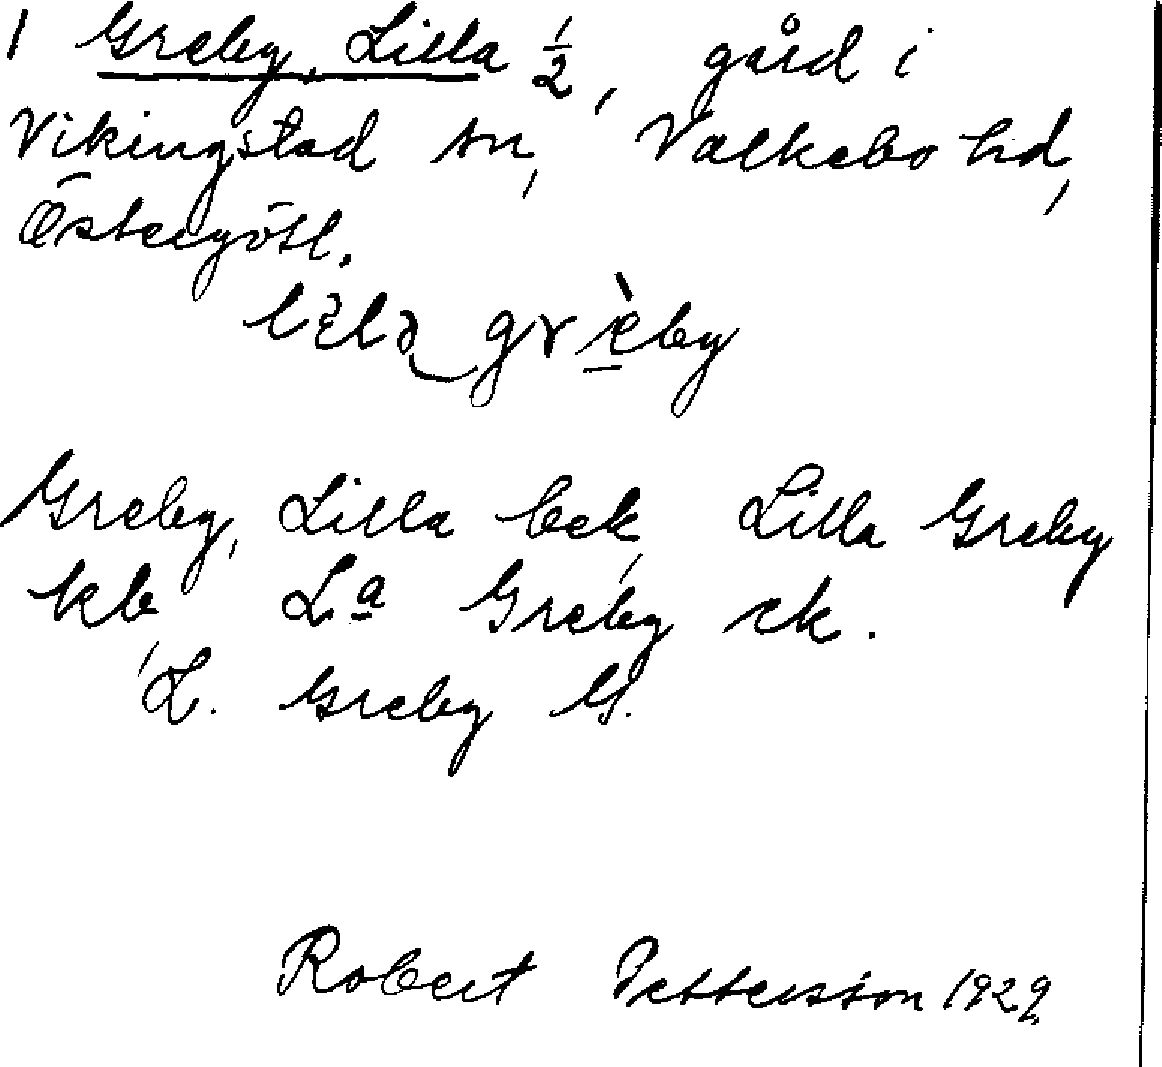 1 Greby, Lilla 1/2, gård i
Vikingstad sn, Valkebo hd,
Östergötl.
Greby, Lilla bek, Lilla Greby
kb, Lª Greby ek.
L. Greby G.
Robert Pettersson 1929